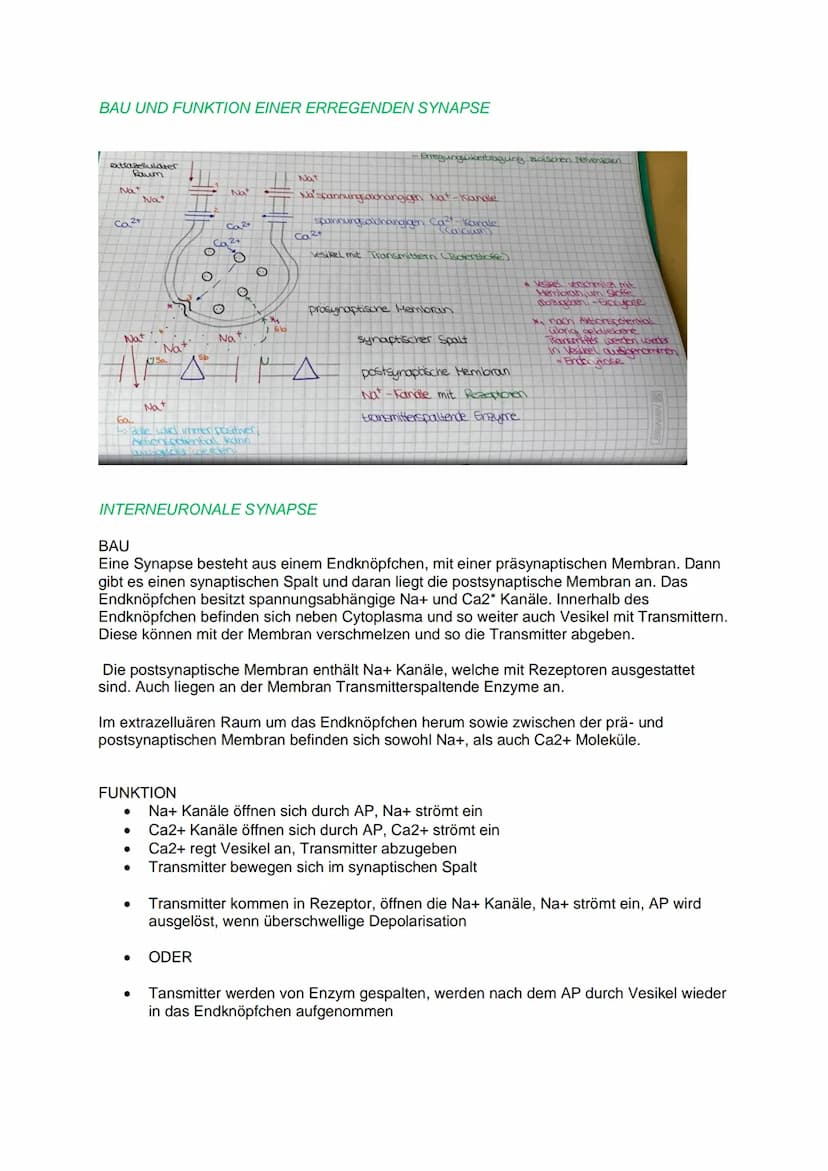 BAU UND FUNKTION EINER ERREGENDEN SYNAPSE
- Erregungsübertragung zwischen Nervenzellen
extrazellulärer
Raum
Na⁺
Na⁺
Na⁺
Na⁺
1
Na⁺ spannungsabhängigen Na⁺-Kanäle
2
Ca²⁺
Ca²⁺
Ca²⁺
Ca²⁺
spannungsabhängigen Ca²⁺-Kanäle
(Calcium)
Vesikel mit Transmittern (Botenstoffe)
* Vesikel verschmilzt mit
Membran, um Stoffe
abzugeben -Exozytose
präsynaptische Membran
*₁ nach Aktionspotential
übrig gebliebene
Transmitter werden wieder
in Vesikel aufgenommen
= Endozytose
Na⁺
Na⁺
Na⁺
6b
synaptischer Spalt
5a
5b
postsynaptische Membran
Na⁺-Kanäle mit Rezeptoren
Na⁺
transmitterspaltende Enzyme
6a
Zelle wird immer positiver,
Aktionspotential kann
ausgelöst werden
INTERNEURONALE SYNAPSE
BAU
Eine Synapse besteht aus einem Endknöpfchen, mit einer präsynaptischen Membran. Dann
gibt es einen synaptischen Spalt und daran liegt die postsynaptische Membran an. Das
Endknöpfchen besitzt spannungsabhängige Na+ und Ca2* Kanäle. Innerhalb des
Endknöpfchen befinden sich neben Cytoplasma und so weiter auch Vesikel mit Transmittern.
Diese können mit der Membran verschmelzen und so die Transmitter abgeben.
Die postsynaptische Membran enthält Na+ Kanäle, welche mit Rezeptoren ausgestattet
sind. Auch liegen an der Membran Transmitterspaltende Enzyme an.
Im extrazelluären Raum um das Endknöpfchen herum sowie zwischen der prä- und
postsynaptischen Membran befinden sich sowohl Na+, als auch Ca2+ Moleküle.
FUNKTION
• Na+ Kanäle öffnen sich durch AP, Na+ strömt ein
• Ca2+ Kanäle öffnen sich durch AP, Ca2+ strömt ein
• Ca2+ regt Vesikel an, Transmitter abzugeben
• Transmitter bewegen sich im synaptischen Spalt
• Transmitter kommen in Rezeptor, öffnen die Na+ Kanäle, Na+ strömt ein, AP wird
ausgelöst, wenn überschwellige Depolarisation
• ODER
• Tansmitter werden von Enzym gespalten, werden nach dem AP durch Vesikel wieder
in das Endknöpfchen aufgenommen